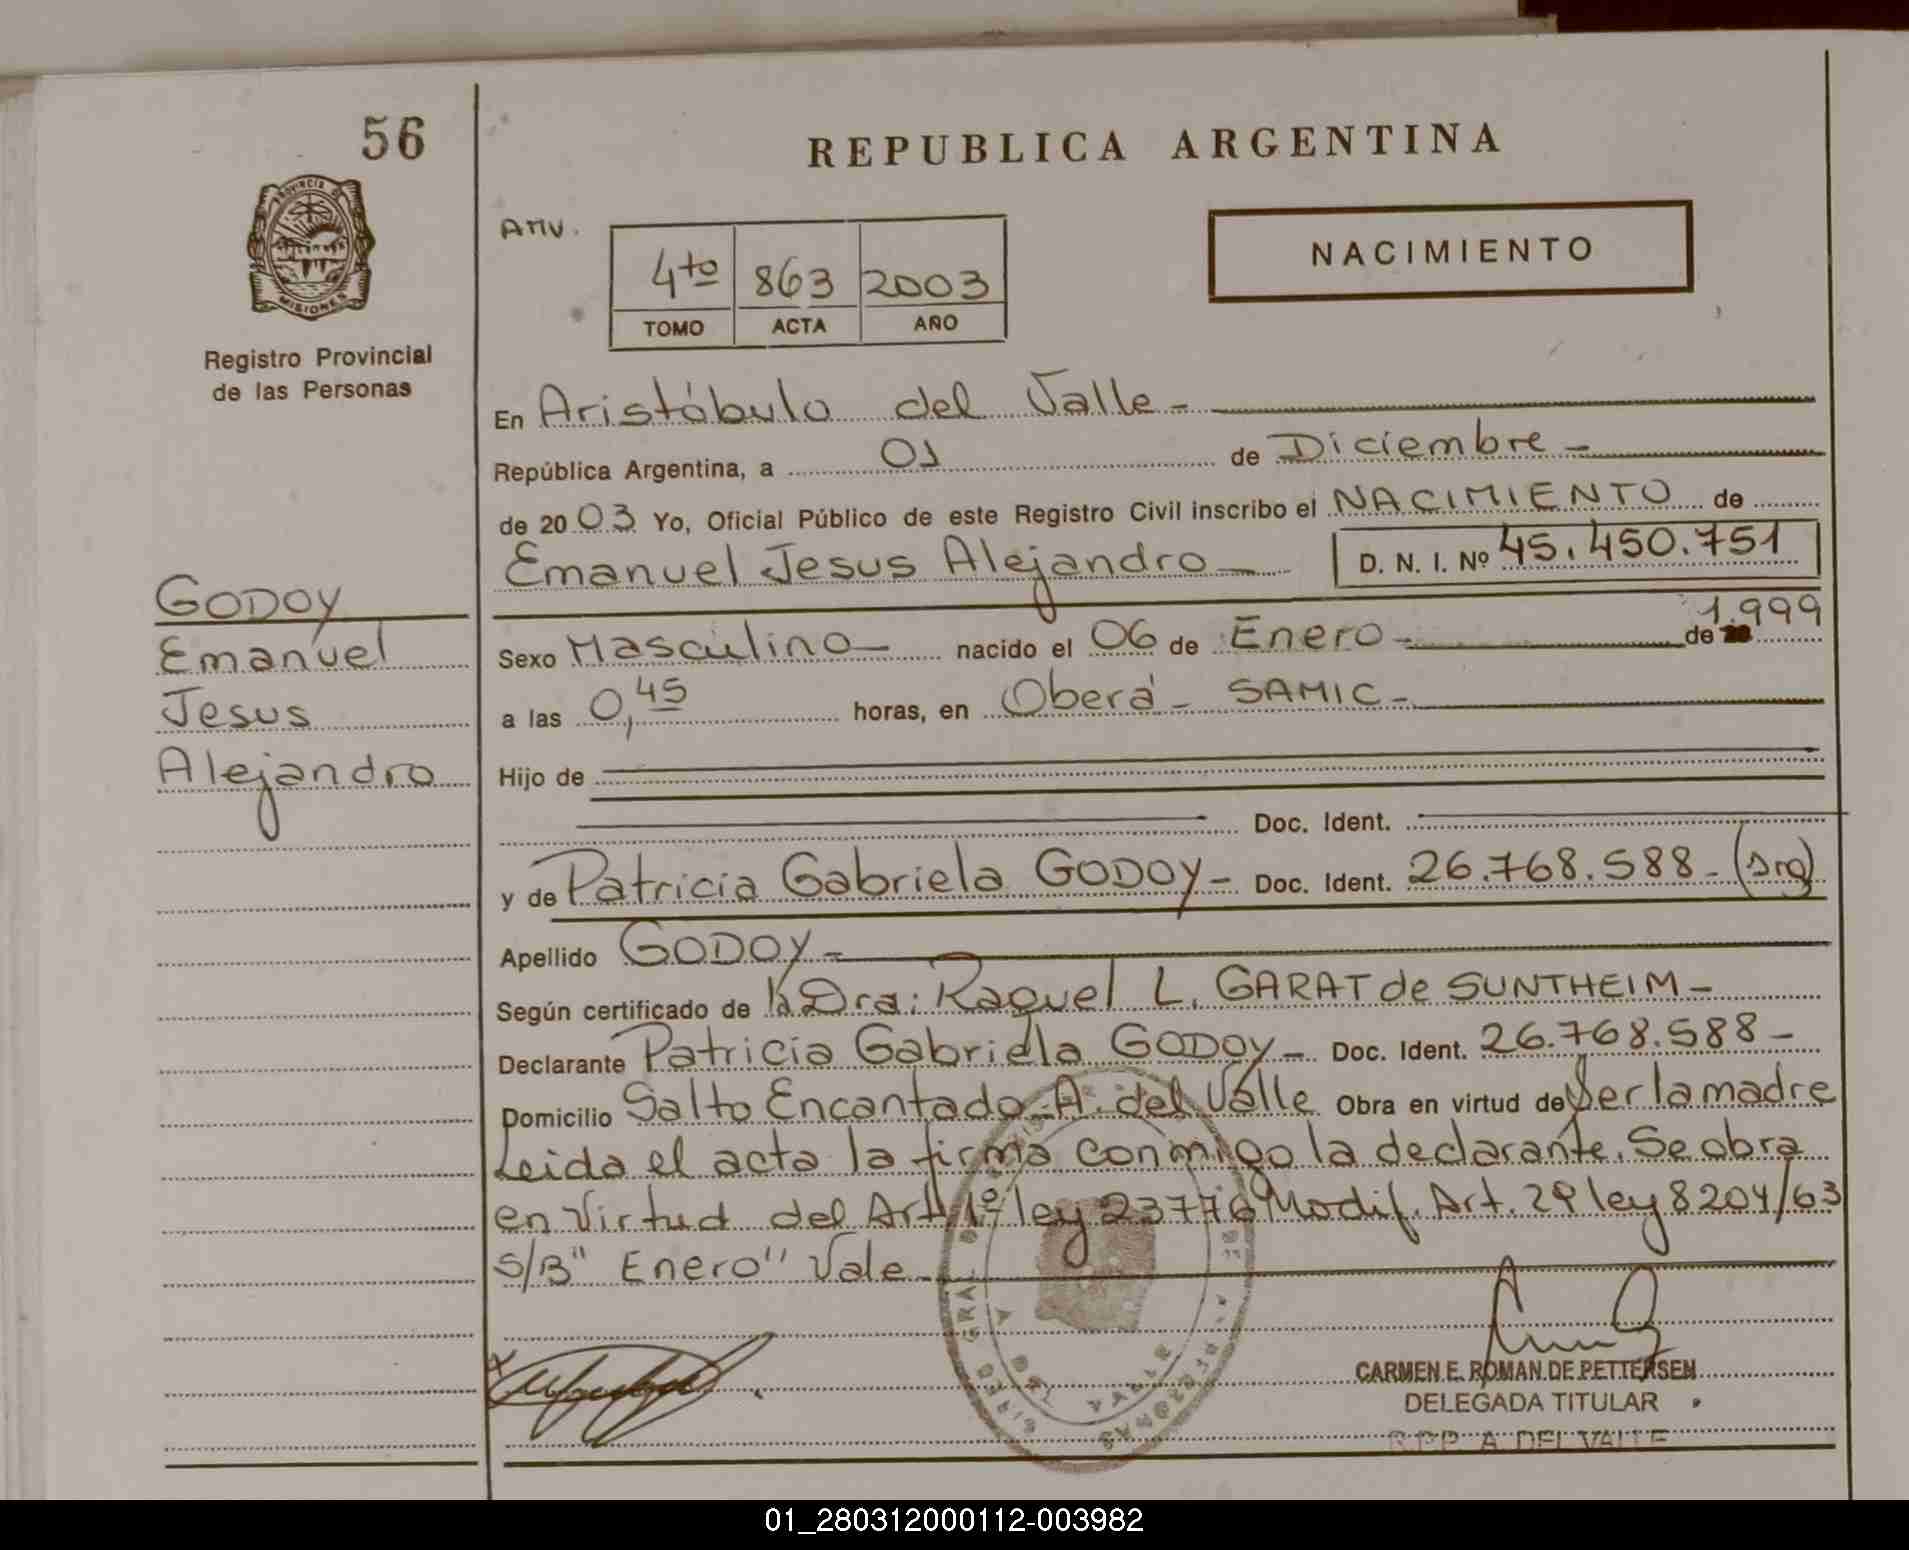 56
REPUBLICA ARGENTINA
PROVINCIA DE
MISIONES
Registro Provincial
de las Personas
4to 863 2003
TOMO ACTA AÑO
NACIMIENTO
En Aristóbulo del Valle -
República Argentina, a 01 de Diciembre -
de 20 03 Yo, Oficial Público de este Registro Civil inscribo el NACIMIENTO de
Emanuel Jesus Alejandro - D. N. I. Nº 45.450.751
GODOY
Emanuel
Jesus
Alejandro
Sexo Masculino - nacido el 06 de Enero - de 1.999
a las 0,45 horas, en Oberá - SAMIC -
Hijo de
Doc. Ident.
y de Patricia Gabriela GODOY - Doc. Ident. 26.768.588 -
Apellido GODOY -
Según certificado de la Dra: Raquel L. GARAT de SUNTHEIM -
Declarante Patricia Gabriela GODOY - Doc. Ident. 26.768.588 -
Domicilio Salto Encantado - A. del Valle Obra en virtud de Ser la madre
Leida el acta la firma conmigo la declarante. Se obra
en Virtud del Art 1º ley 23776 Modif. Art. 29 ley 8204/63
S/B "Enero" Vale -
CARMEN E. ROMAN DE PETTERSEN
DELEGADA TITULAR
R.P.P. A. DEL VALLE
01_280312000112-003982